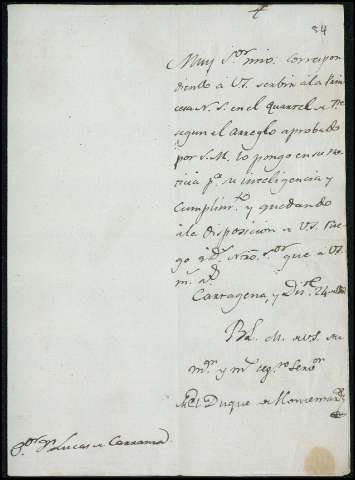 84
Muy S.or mio: correspon
diendo à VS. serbir à la Prin
cesa N. S. en el quartel de
segun el arreglo aprobado
por S. M. lo pongo en su no
ticia p.a su inteligencia y
cumplim.to y quedando
à la disposicion de VS. rue
go à D.s Nro. S.or que à VS.
m. a.s
Cartagena, y Dis.re 24
BL. M. de VS. su
m.or y m.s seg.ro Serv.or
El Duque de Montemar
S.or D.n Lucas de Carranza